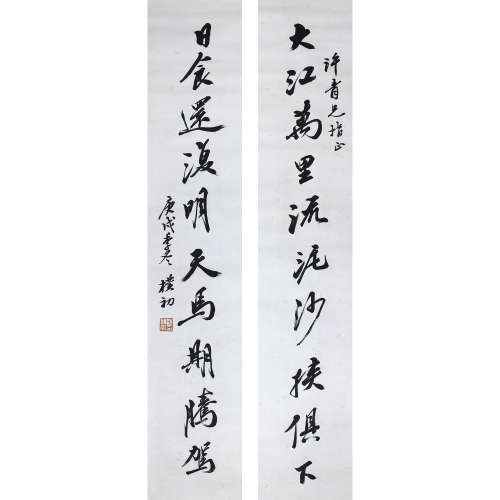 大江萬里流泥沙挾俱下
許青兄指正
日食還復明天馬期騰駕
庚戌季冬 樸初